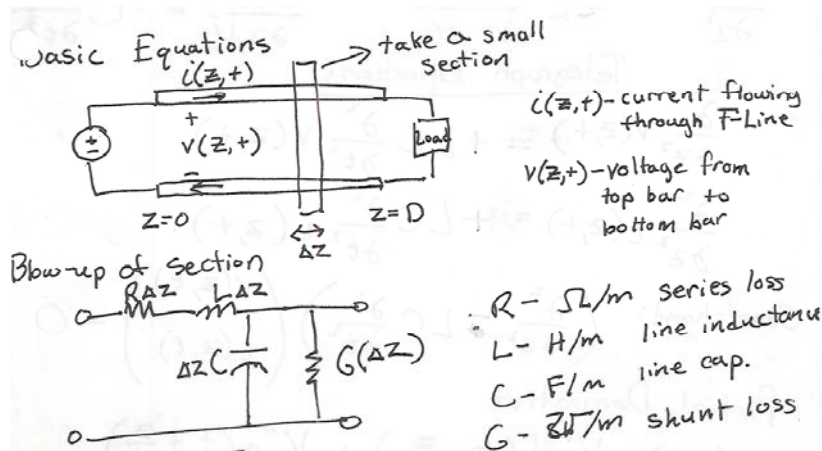 Basic Equations
take a small
section
i(z,t)
+
v(z,t)
-
±
Load
z=0
z=D
ΔZ
i(z,t)-current flowing
through T-Line
v(z,t)-voltage from
top bar to
bottom bar
Blow-up of section
RΔZ LΔZ
ΔZC
G(ΔZ)
R - Ω/m series loss
L - H/m line inductance
C - F/m line cap.
G - /m shunt loss